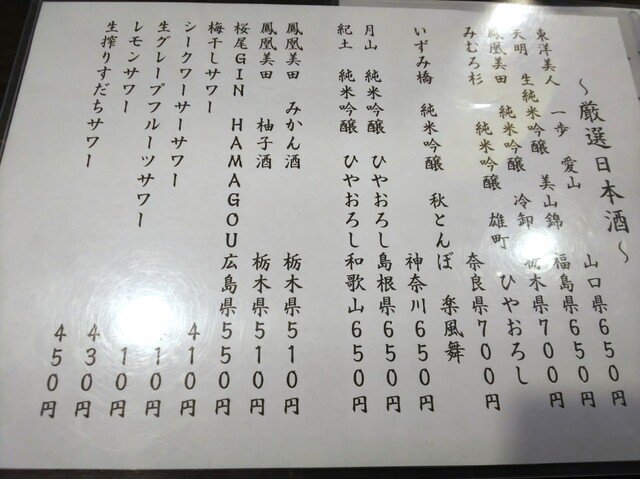 ～厳選日本酒～
東洋美人　一歩　愛山　山口県650円
天明　生純米吟醸　美山錦　福島県650円
鳳凰美田　純米吟醸　冷卸　栃木県700円
みむろ杉　純米吟醸　雄町　ひやおろし
奈良県700円
いずみ橋　純米吟醸　秋とんぼ　楽風舞
神奈川650円
月山　純米吟醸　ひやおろし島根県650円
紀土　純米吟醸　ひやおろし和歌山650円
鳳凰美田　みかん酒　栃木県510円
鳳凰美田　柚子酒　栃木県510円
桜尾GIN　HAMAGOU広島県550円
梅干しサワー　410円
シークワーサーサワー　410円
生グレープフルーツサワー　10円
レモンサワー　430円
生搾りすだちサワー　450円